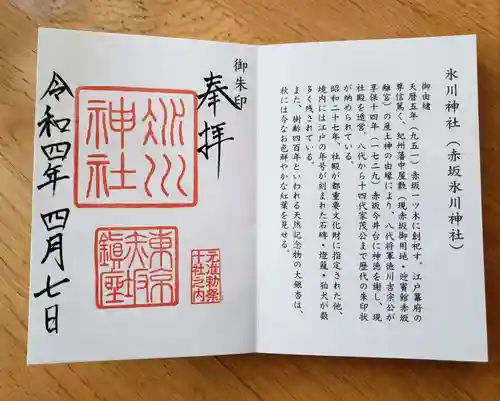 氷川神社(赤坂氷川神社)
御由緒
天暦五年(九五一)赤坂一ツ木に創祀す。江戸幕府の
尊信篤く、紀州藩中屋敷(現赤坂御用地・迎賓館赤坂
離宮)の産土神の由縁により、八代将軍徳川吉宗公が
享保十四年(一七二九)赤坂今井台に神徳を謝し、現
社殿を造営。八代から十四代家茂公まで歴代の朱印状
が納められている。
昭和二十七年、社殿が都重要文化財に指定された他、
境内には江戸の年号が刻まれた石碑・燈籠・狛犬が数
多く残されている。
また、樹齢四百年といわれる天然記念物の大銀杏は、
秋には今なお色鮮やかな紅葉を見せる。
御朱印
奉拝
氷川
神社
東京
赤坂
鎮座
元准勅祭
十社之内
令和四年四月七日